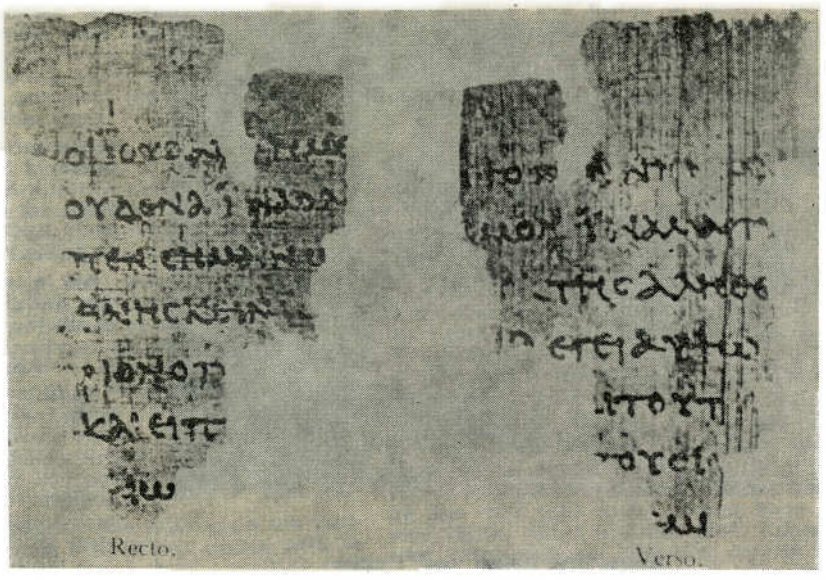 ΟΙ ΙΟΥΔΑΙ ΗΜΕΙ
ΟΥΔΕΝΑ ΪΝΑ Ο Λ
ΠΕΝ ϹΗΜΑΙΝΩ
ΘΝΗϹΚΕΙΝ
ΡΙΟΝ Ο Π
ΚΑΙ ΕΙΠ
ΑΙΩ
Recto.
ϹΜΟΝ ΪΝΑ ΜΑΡΤ
ΤΗϹ ΑΛΗΘΕ
ΛΕΓΕΙ ΑΥΤΩ
ΑΙ ΤΟΥΤ
ΤΟΥϹ Ι
Verso.